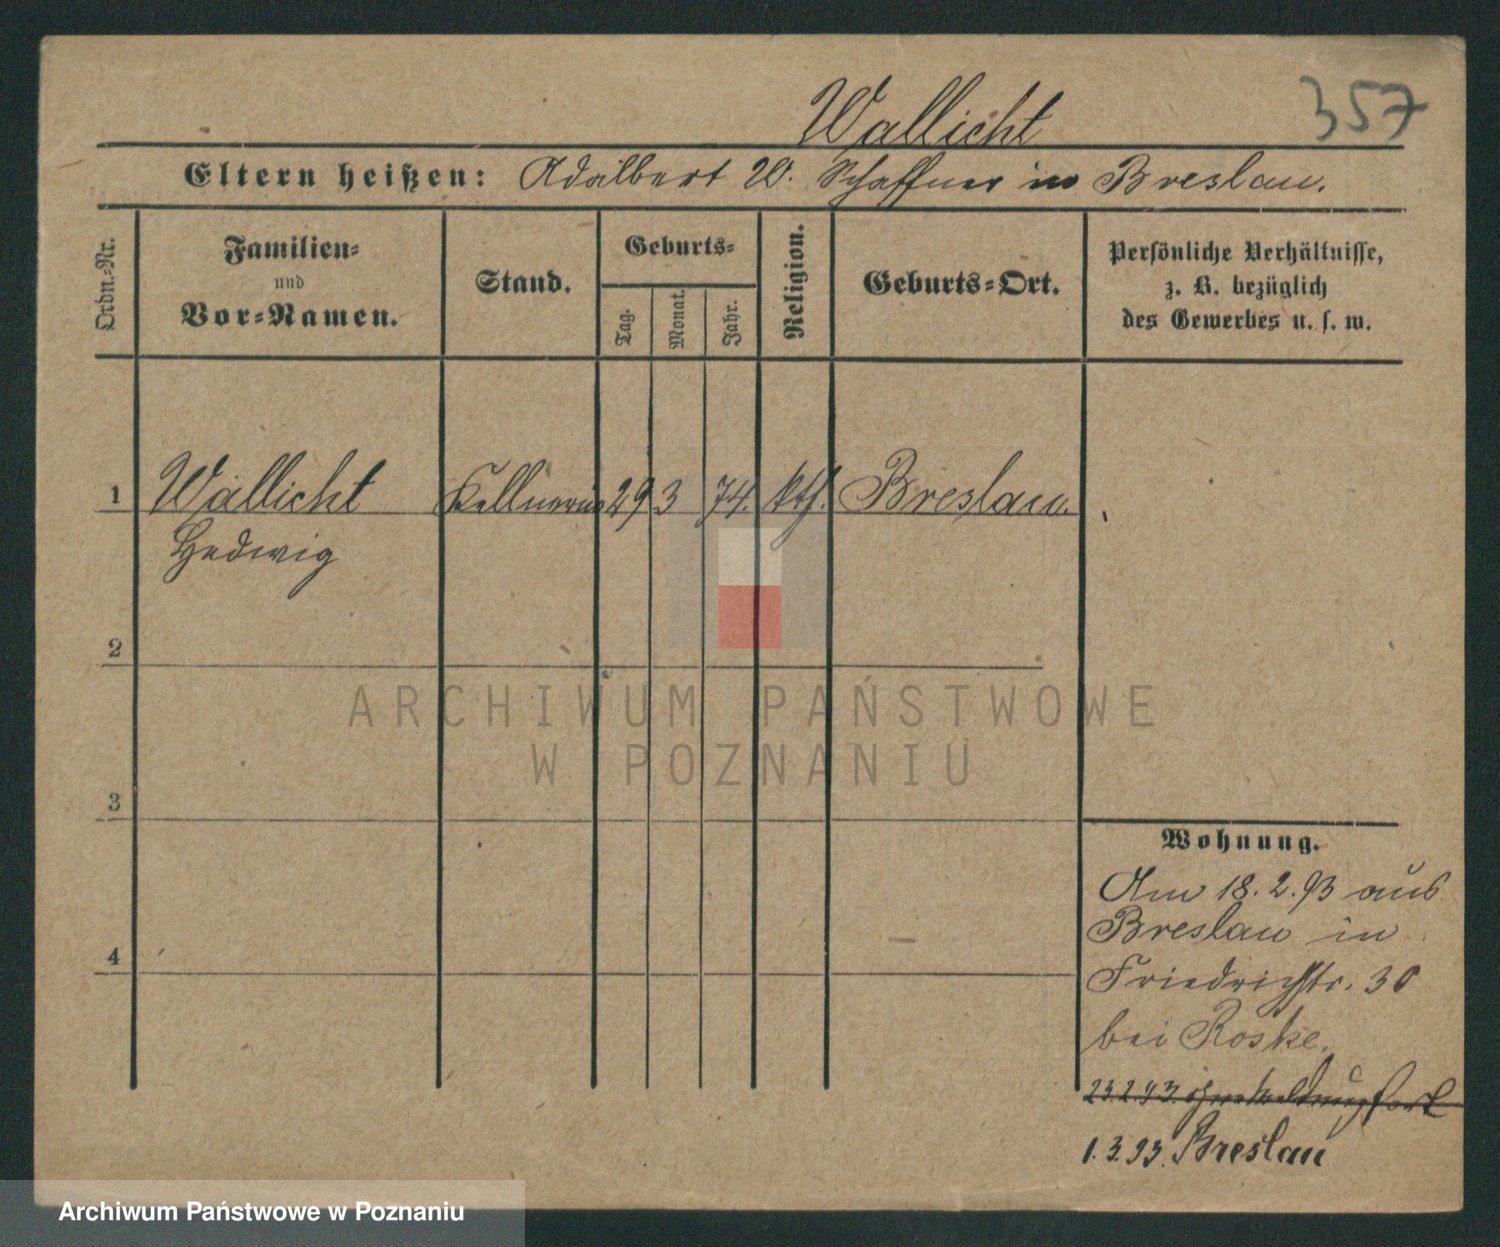 Wallicht
357
Eltern heißen: Adalbert W. Schaffner in Breslau.
Ordn.-Nr.
Familien-
und
Vor-Namen.
Stand.
Geburts-
Tag.
Monat.
Jahr.
Religion.
Geburts-Ort.
Persönliche Verhältnisse,
z. B. bezüglich
des Gewerbes u. s. w.
1 Wallicht Kellnerin 29 3 74. kth. Breslau.
Hedwig
2
ARCHIWUM PAŃSTWOWE
W POZNANIU
3
Wohnung.
Am 18.2.93 aus
Breslau in
4
Friedrichstr. 30
bei Roske.
23.2.93. ohne Meldung fort
1.3.93. Breslau
Archiwum Państwowe w Poznaniu